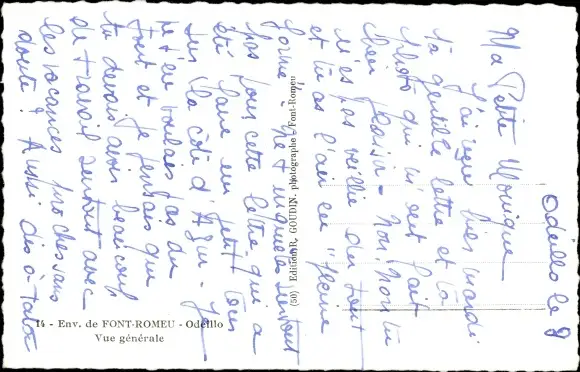 Odeillo le 9
Ma Petite Monique
J'ai reçu hier mardi
ta gentille lettre et ta
photo qui m'ont fait
bien plaisir - Non, non tu
n'es pas vieillie du tout
et tu as l'air en "pleine
forme". Ne t'inquiète surtout
pas pour cette lettre qui a
été faire un petit tour
sur la côte d'Azur - Je
ne t'en voulais pas du
tout et je pensais que
tu devais avoir beaucoup
de travail surtout avec
les vacances proches sans
doute? Aussi dis-à-Tata
14 - Env. de FONT-ROMEU - Odeillo
Vue générale
(50) Edition R. GOUDIN, photographe - Font-Romeu